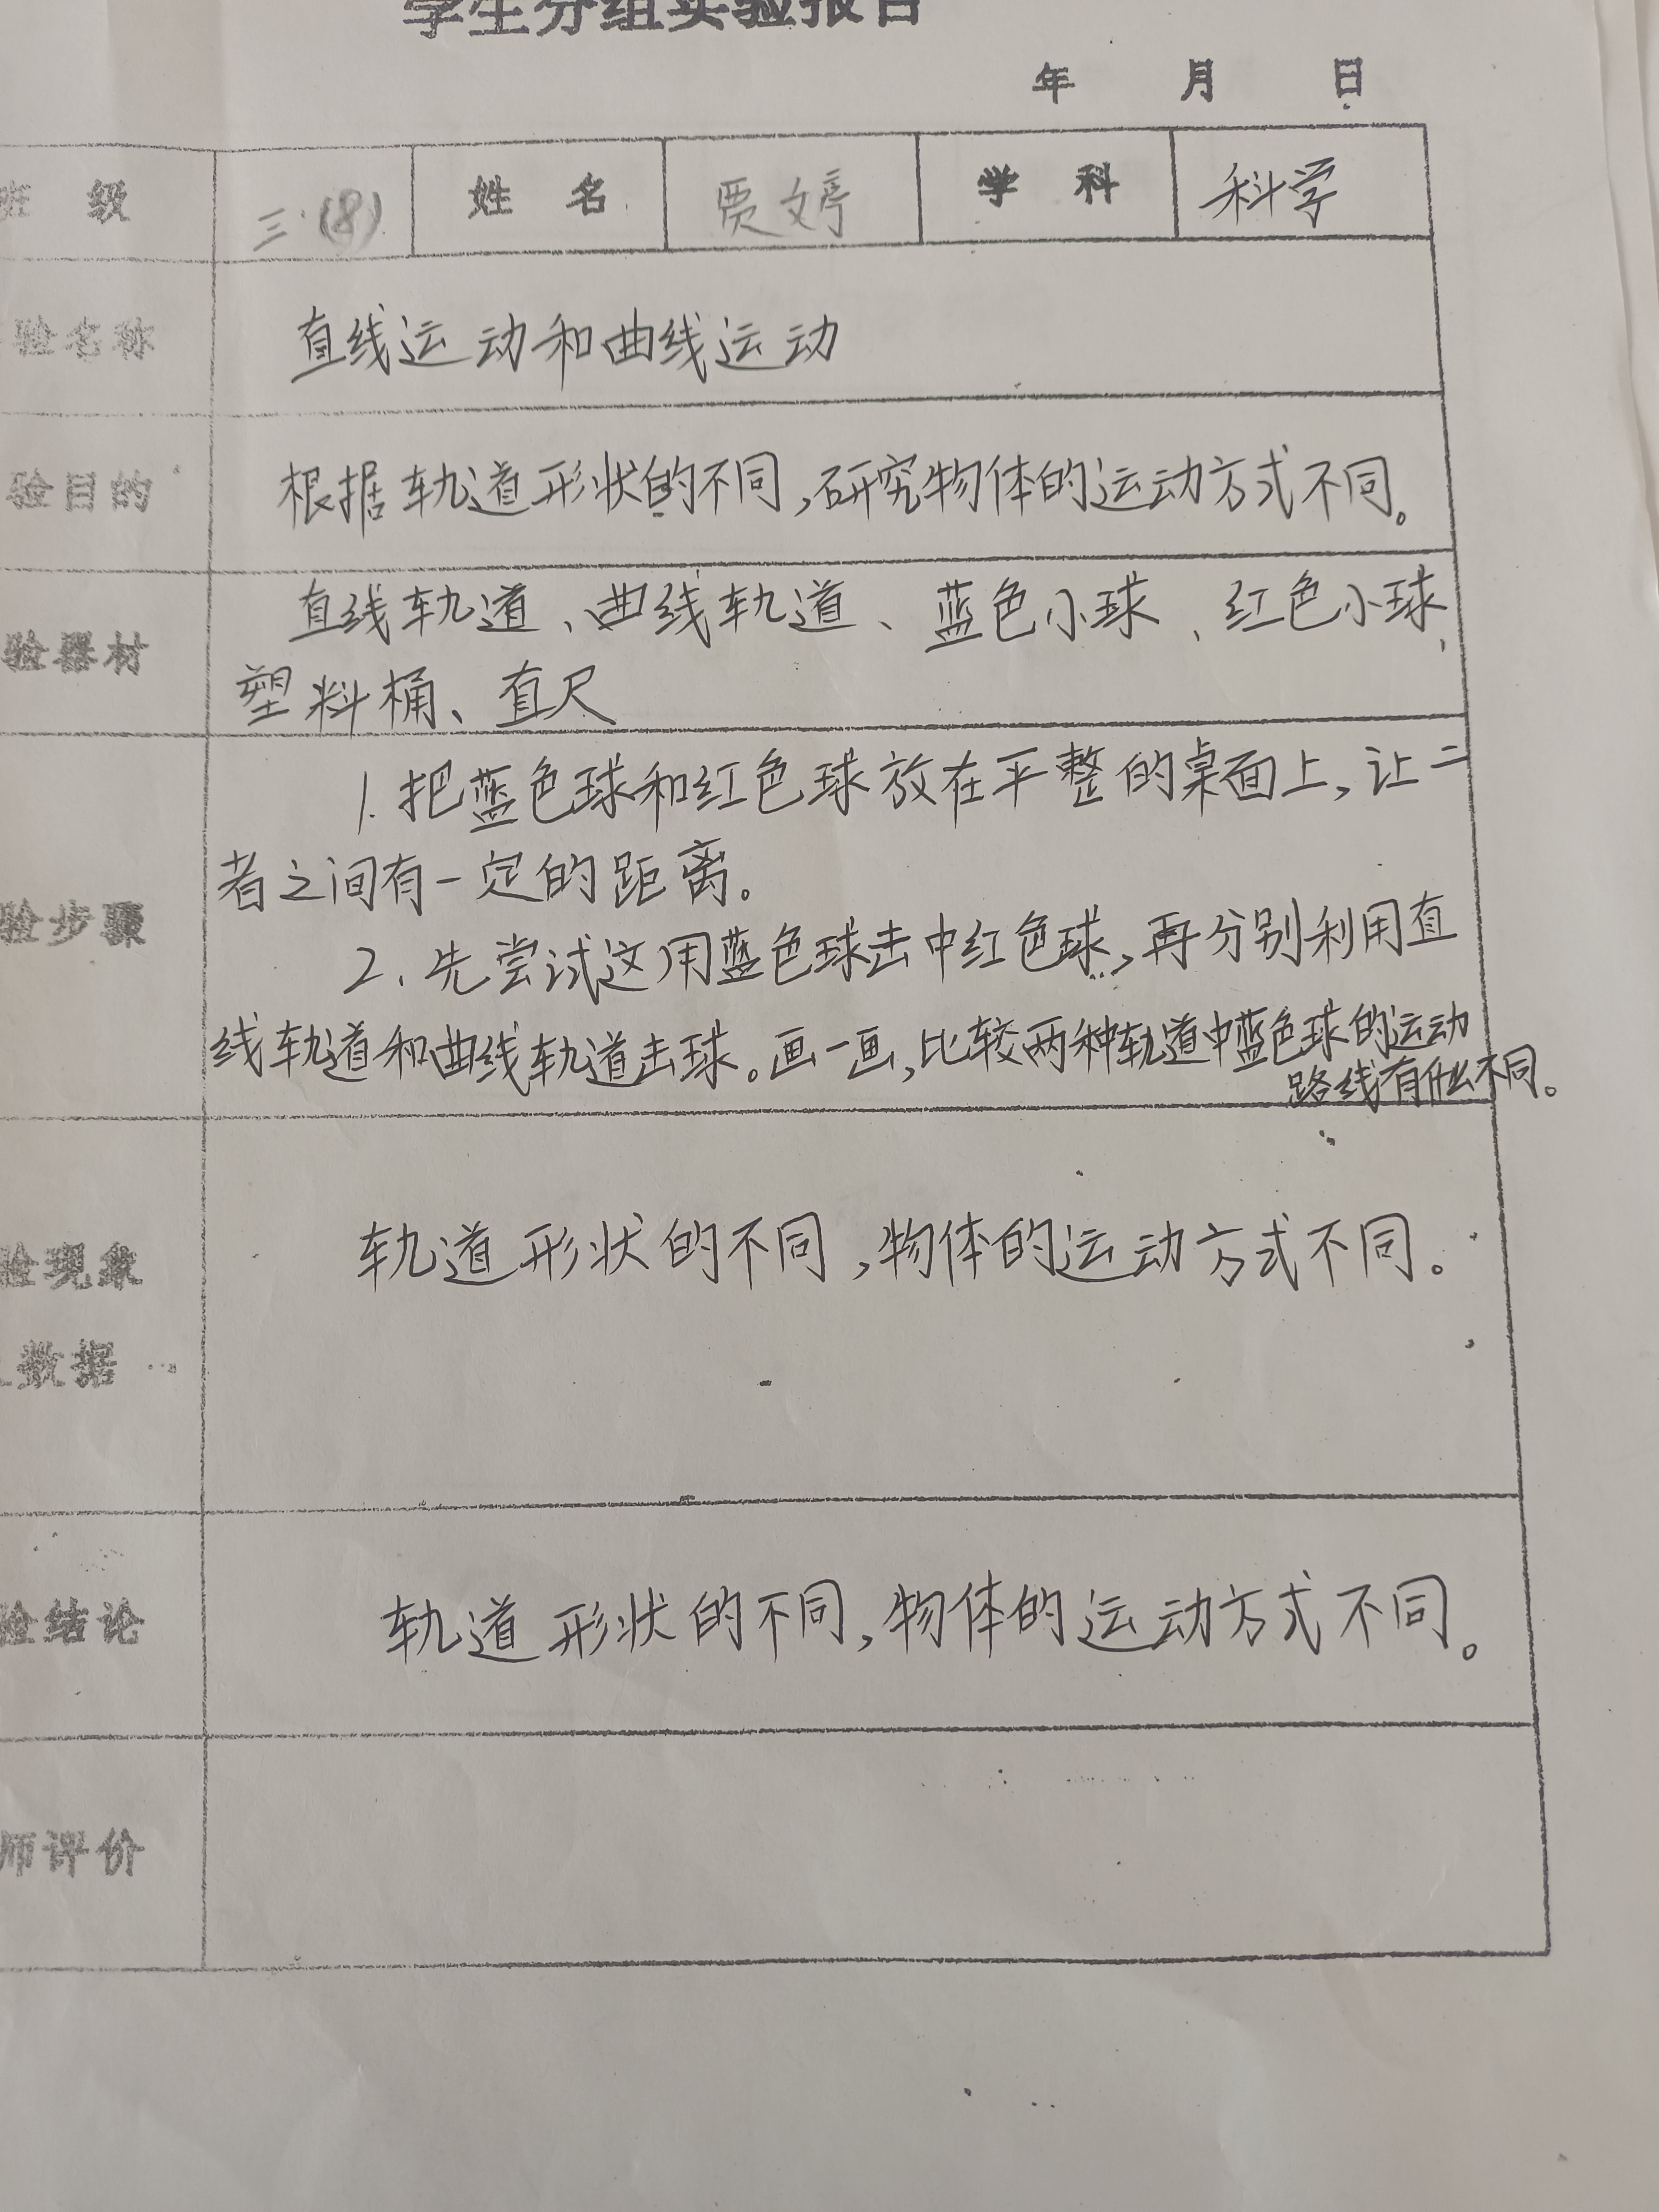 学生分组实验报告
年 月 日
班 级 三.(8) 姓 名 贾文婷 学 科 科学
验名称 直线运动和曲线运动
验目的 根据轨道形状的不同,研究物体的运动方式不同。
验器材 直线轨道、曲线轨道、蓝色小球、红色小球、
塑料桶、直尺
验步骤
1.把蓝色球和红色球放在平整的桌面上,让二
者之间有一定的距离。
2.先尝试这用蓝色球击中红色球,再分别利用直
线轨道和曲线轨道击球。画一画,比较两种轨道中蓝色球的运动
路线有什么不同。
验现象
数据
轨道形状的不同,物体的运动方式不同。
验结论 轨道形状的不同,物体的运动方式不同。
师评价